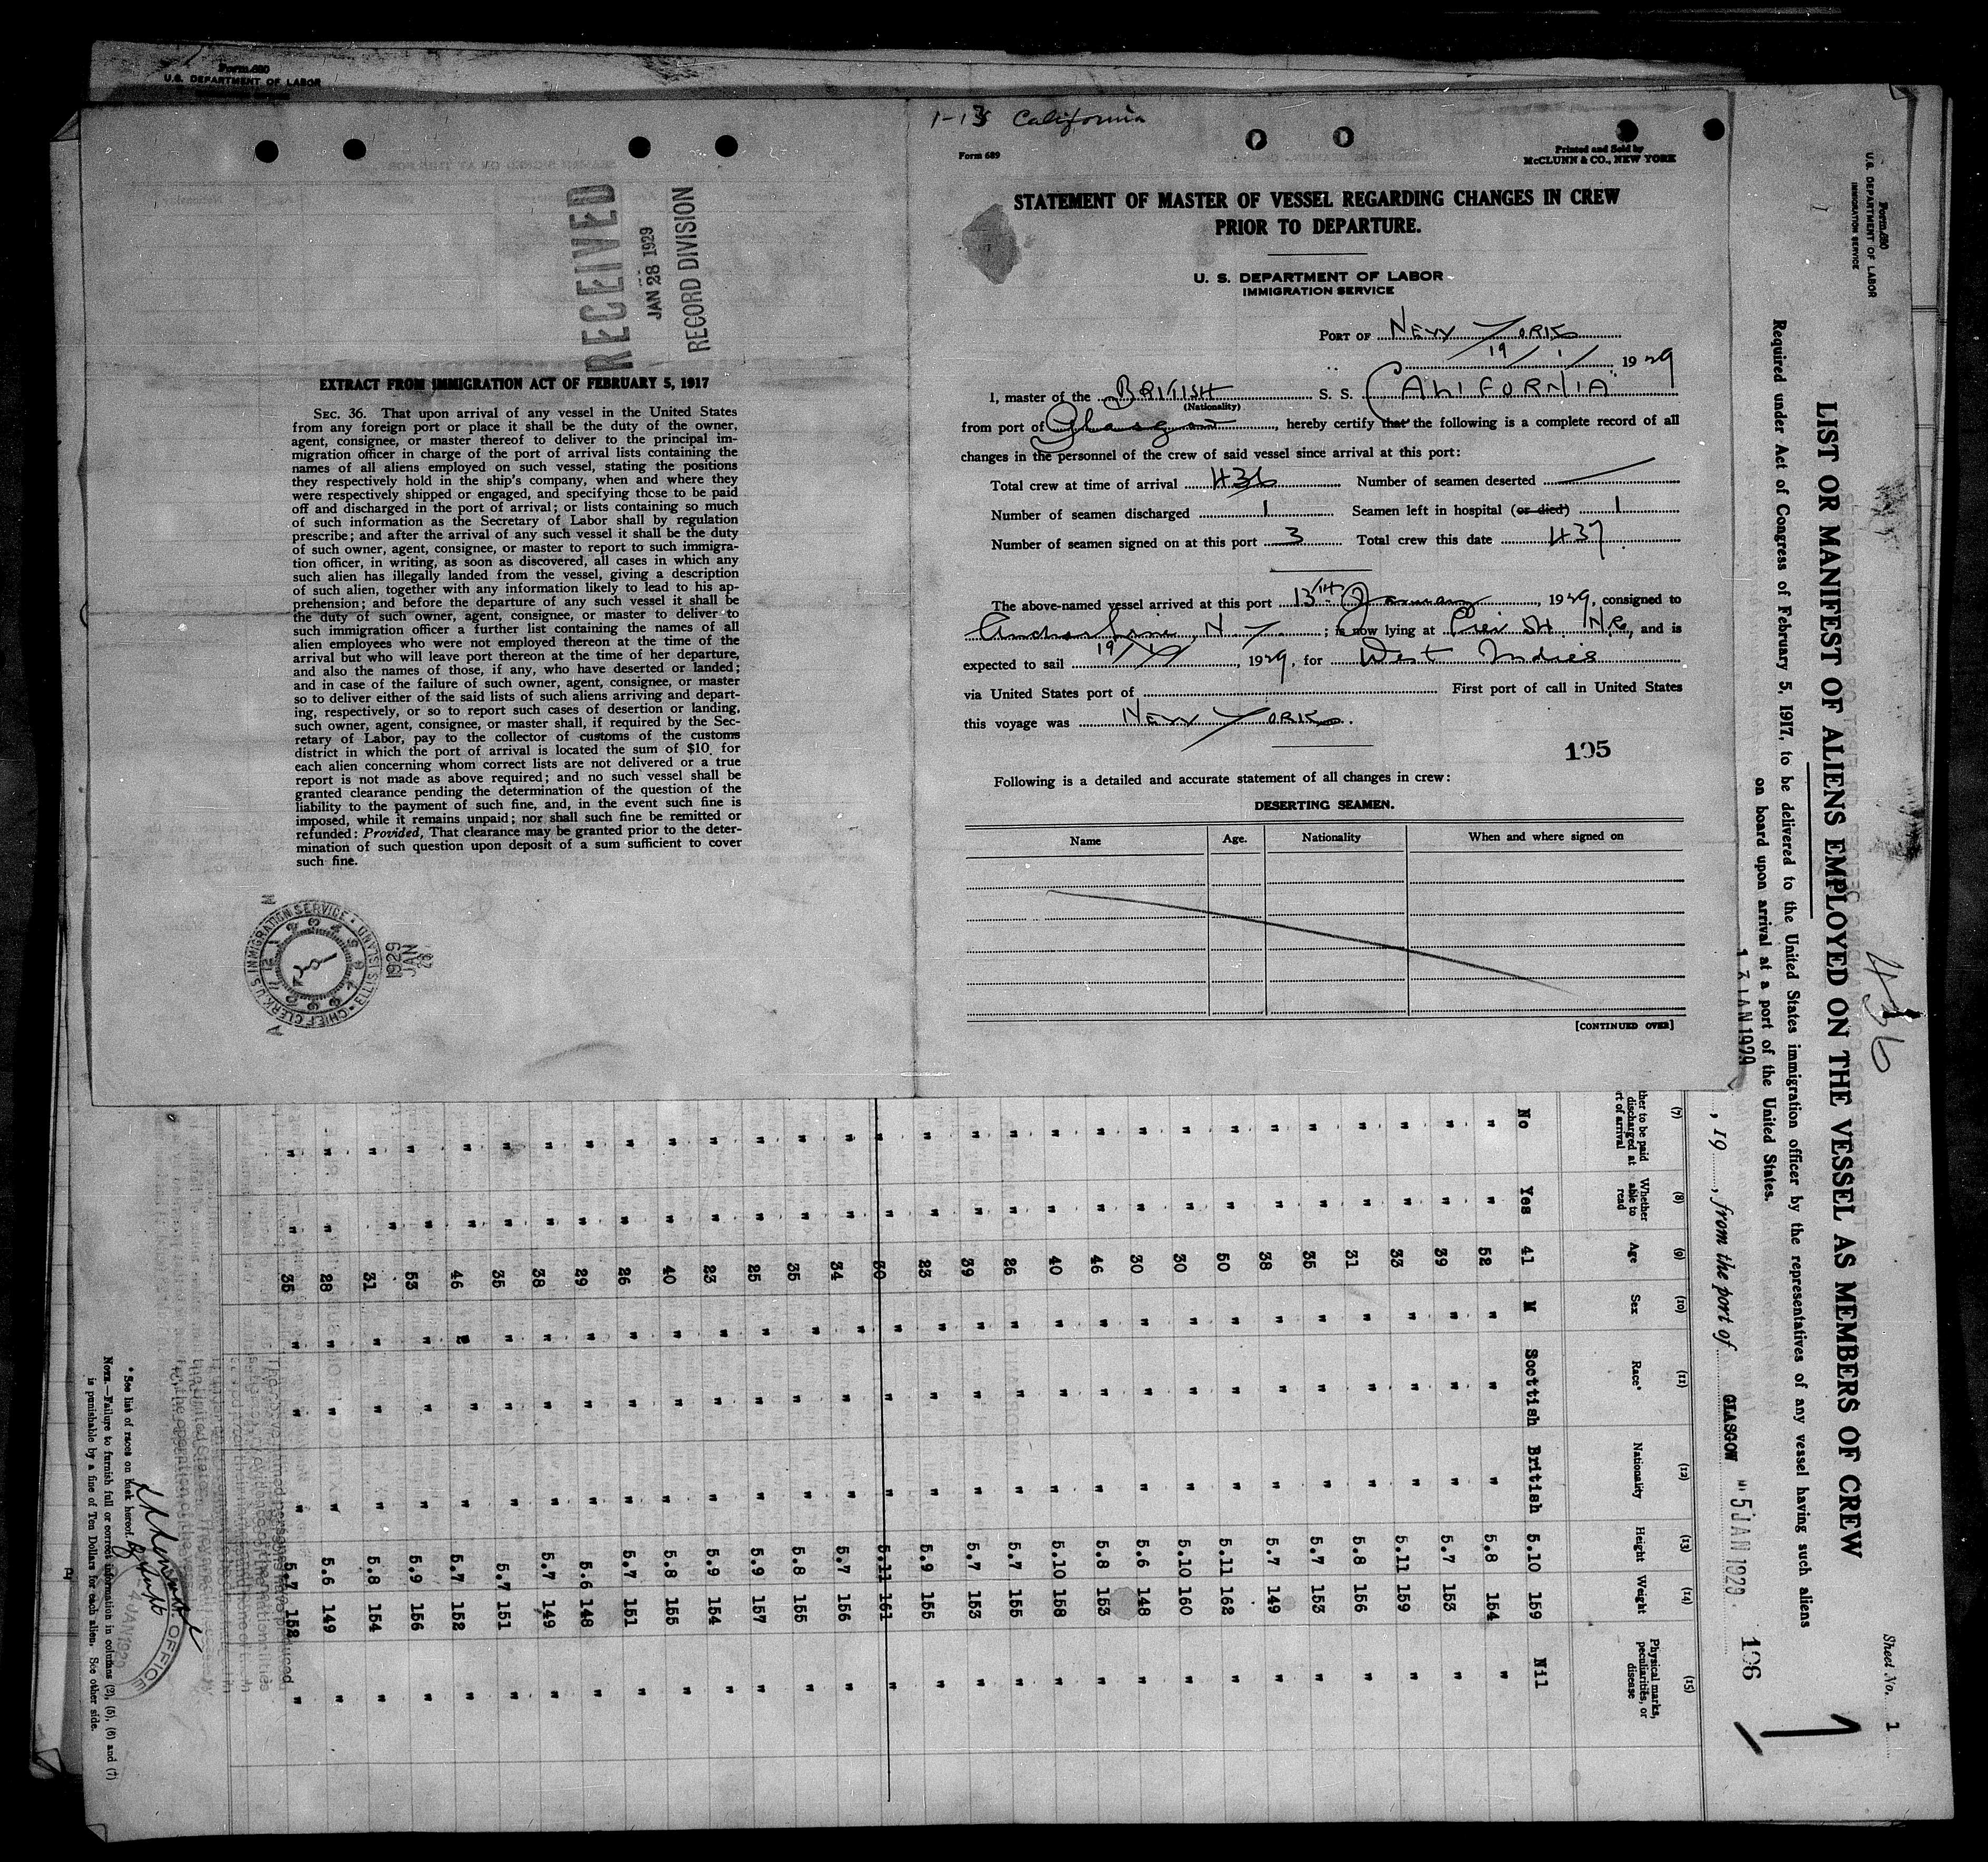 Form 680
U.S. DEPARTMENT OF LABOR
RECEIVED
JAN 28 1929
RECORD DIVISION
EXTRACT FROM IMMIGRATION ACT OF FEBRUARY 5, 1917
SEC. 36. That upon arrival of any vessel in the United States
from any foreign port or place it shall be the duty of the owner,
agent, consignee, or master thereof to deliver to the principal im-
migration officer in charge of the port of arrival lists containing the
names of all aliens employed on such vessel, stating the positions
they respectively hold in the ship's company, when and where they
were respectively shipped or engaged, and specifying those to be paid
off and discharged in the port of arrival; or lists containing so much
of such information as the Secretary of Labor shall by regulation
prescribe; and after the arrival of any such vessel it shall be the duty
of such owner, agent, consignee, or master to report to such immigra-
tion officer, in writing, as soon as discovered, all cases in which any
such alien has illegally landed from the vessel, giving a description
of such alien, together with any information likely to lead to his ap-
prehension; and before the departure of any such vessel it shall be
the duty of such owner, agent, consignee, or master to deliver to
such immigration officer a further list containing the names of all
alien employees who were not employed thereon at the time of the
arrival but who will leave port thereon at the time of her departure,
and also the names of those, if any, who have deserted or landed;
and in case of the failure of such owner, agent, consignee, or master
so to deliver either of the said lists of such aliens arriving and depart-
ing, respectively, or so to report such cases of desertion or landing,
such owner, agent, consignee, or master shall, if required by the Sec-
retary of Labor, pay to the collector of customs of the customs
district in which the port of arrival is located the sum of $10 for
each alien concerning whom correct lists are not delivered or a true
report is not made as above required; and no such vessel shall be
granted clearance pending the determination of the question of the
liability to the payment of such fine, and, in the event such fine is
imposed, while it remains unpaid; nor shall such fine be remitted or
refunded: Provided, That clearance may be granted prior to the deter-
mination of such question upon deposit of a sum sufficient to cover
such fine.
CHIEF CLERK U.S. IMMIGRATION SERVICE • ELLIS ISLAND
1929 JAN
California
Form 689
Printed and Sold by
McCLUNN & CO., NEW YORK
STATEMENT OF MASTER OF VESSEL REGARDING CHANGES IN CREW
PRIOR TO DEPARTURE.
U. S. DEPARTMENT OF LABOR
IMMIGRATION SERVICE
PORT OF NEW YORK
19/1/ 1929
I, master of the BRITISH S. S. CALIFORNIA
(Nationality)
from port of Glasgow, hereby certify that the following is a complete record of all
changes in the personnel of the crew of said vessel since arrival at this port:
Total crew at time of arrival 436 Number of seamen deserted
Number of seamen discharged 1 Seamen left in hospital (or died) 1
Number of seamen signed on at this port 3 Total crew this date 437
The above-named vessel arrived at this port 13th January, 1929, consigned to
Anchor Line, N.Y.; is now lying at Pier 54 N.R., and is
expected to sail 19/1/, 1929, for West Indies
via United States port of First port of call in United States
this voyage was NEW YORK.
195
Following is a detailed and accurate statement of all changes in crew:
DESERTING SEAMEN.
Name Age. Nationality When and where signed on
[CONTINUED OVER]
Form 680
U.S. DEPARTMENT OF LABOR
IMMIGRATION SERVICE
Sheet No. 1
436
LIST OR MANIFEST OF ALIENS EMPLOYED ON THE VESSEL AS MEMBERS OF CREW
Required under Act of Congress of February 5, 1917, to be delivered to the United States immigration officer by the representatives of any vessel having such aliens
on board upon arrival at a port of the United States.
13 JAN 1929
, 19 , from the port of GLASGOW 5 JAN 1929. 196
(7) (8) (9) (10) (11) (12) (13) (14) (15)
ther to be paid discharged at rt of arrival Whether able to read Age Sex Race* Nationality Height Weight Physical marks, peculiarities, or disease
No Yes 41 M Scottish British 5.10 159 Nil
" " 52 " " " 5.8 154 "
" " 39 " " " 5.7 153 "
" " 33 " " " 5.11 159 "
" " 31 " " " 5.8 156 "
" " 35 " " " 5.7 153 "
" " 38 " " " 5.7 149 "
" " 50 " " " 5.11 162 "
" " 30 " " " 5.10 160 "
" " 30 " " " 5.6 148 "
" " 46 " " " 5.8 153 "
" " 40 " " " 5.10 158 "
" " 26 " " " 5.7 155 "
" " 39 " " " 5.7 153 "
" " 23 " " " 5.9 155 "
" " 30 " " " 5.11 161 "
" " 34 " " " 5.7 156 "
" " 35 " " " 5.8 155 "
" " 25 " " " 5.9 157 "
" " 23 " " " 5.9 154 "
" " 40 " " " 5.8 155 "
" " 26 " " " 5.7 151 "
" " 29 " " " 5.6 148 "
" " 38 " " " 5.7 149 "
" " 35 " " " 5.7 151 "
" " 46 " " " 5.7 152 "
" " 53 " " " 5.9 156 "
" " 31 " " " 5.8 154 "
" " 28 " " " 5.6 149 "
" " 35 " " " 5.7 152 "
* See list of races on back hereof.
NOTE.—Failure to furnish full or correct information in columns (2), (5), (6) and (7)
is punishable by a fine of Ten Dollars for each alien. See other side.
OFFICE
4 JAN 1929